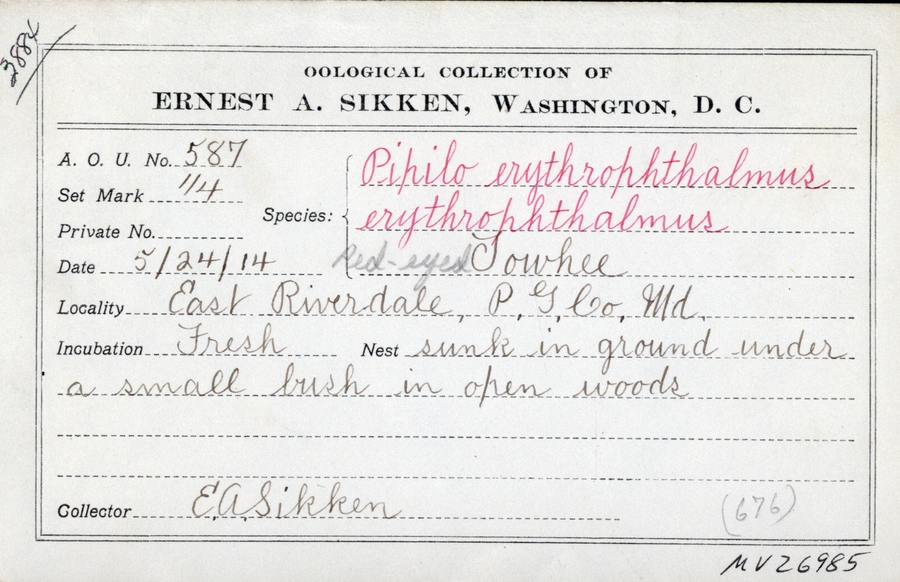 3884
OOLOGICAL COLLECTION OF
ERNEST A. SIKKEN, WASHINGTON, D. C.
A. O. U. No. 587
Set Mark 1/4
Private No.
Date 5/24/14
Species: Pipilo erythrophthalmus
erythrophthalmus
Red-eyed Towhee
Locality East Riverdale, P. G. Co, Md.
Incubation Fresh Nest sunk in ground under
a small bush in open woods
Collector E.A. Sikken
(676)
MV26985